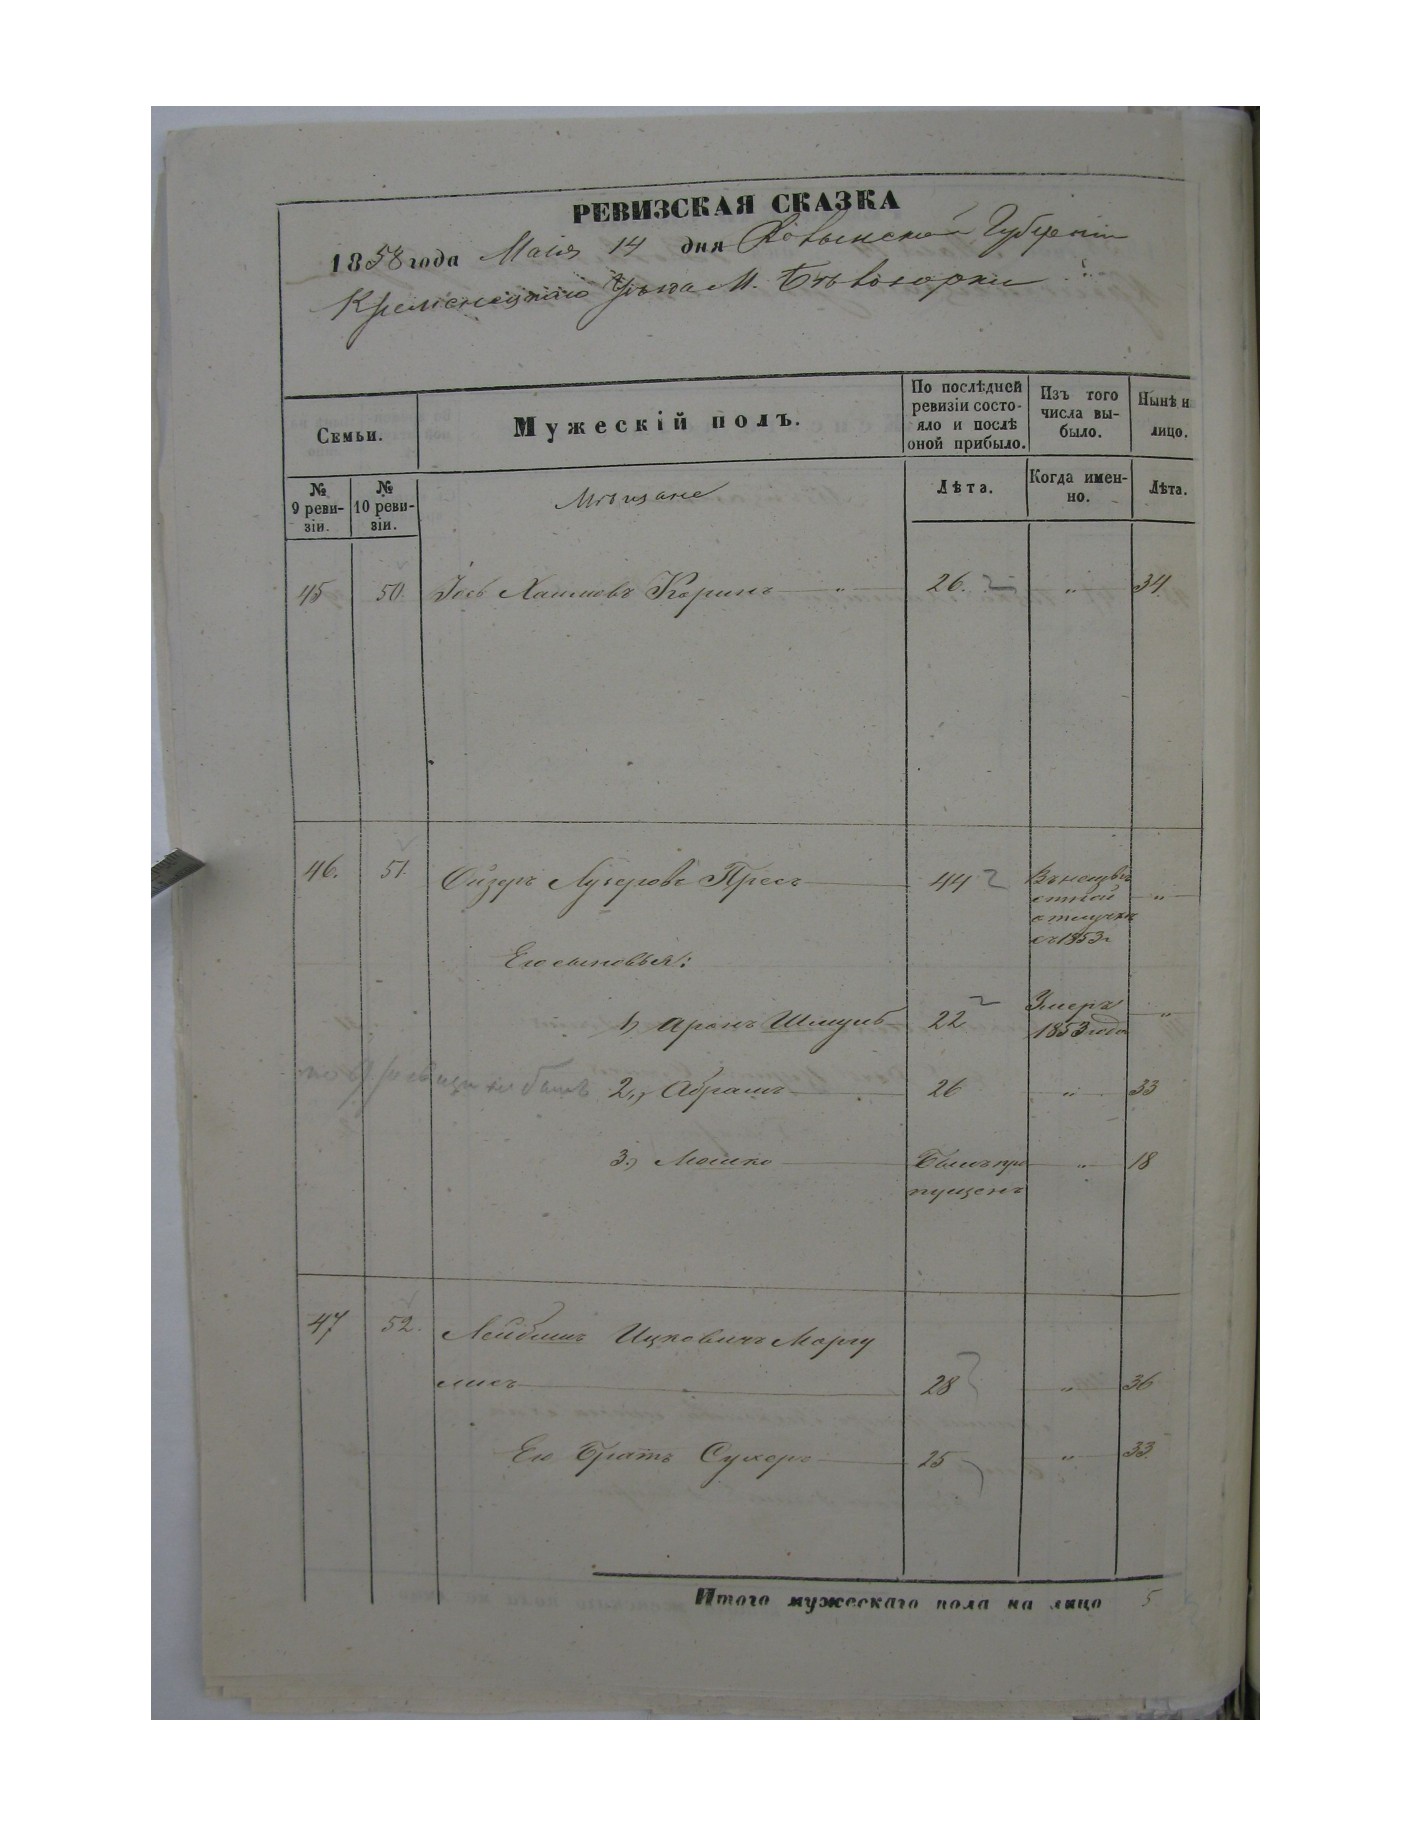 РЕВИЗСКАЯ СКАЗКА
1858 года Маія 14 дня Волынской Губерніи
Кременецкаго Уѣзда М. Бѣлозорки
Семьи.
Мужескій полъ.
По послѣдней ревизіи состояло и послѣ оной прибыло.
Изъ того числа выбыло.
Нынѣ на лицо.
№ 9 ревизіи.
№ 10 ревизіи.
Мѣщане
Лѣта.
Когда именно.
Лѣта.
45 50. Іось Хаимовъ Коринъ — „ — 26. „ 34
46. 51. Ойзеръ Лузеровъ Пресъ 44 Въ неизвѣстной отлучкѣ съ 1853 г „
Его сыновья:
1, Аронъ Шмуль 22 Умеръ 1853 года „
по 9 ревизіи не былъ 2,, Абрамъ 26 „ 33
3.) Мошко Былъ пропущенъ „ 18
47 52. Лейбишъ Ицковичъ Маргу
лисъ 28 „ 36
Его Братъ Сухеръ 25 „ 33
Итого мужескаго пола на лицо 5